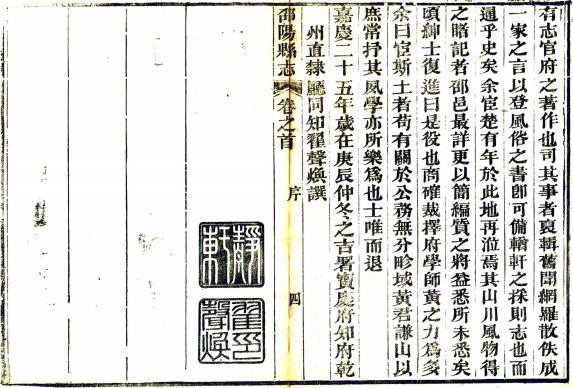 有志官府之著作也司其事者裒輯舊聞網羅散佚成
一家之言以登風俗之書卽可備輶軒之採則志也而
通乎史矣余宦楚有年於此地再涖焉其山川風物得
之睹記者邵邑最詳更以簡編質之將益悉所未悉矣
頃紳士復進曰是役也商確裁擇府學師黃之力爲多
余曰宦斯土者苟有關於公務無分畛域黃君謙山以
庶常抒其夙學亦所樂爲也士唯而退
嘉慶二十五年歲在庚辰仲冬之吉署寶慶府知府乾
州直隸廳同知翟聲煥譔
邵陽縣志
卷之首
序
四
靜軒
翟印聲煥